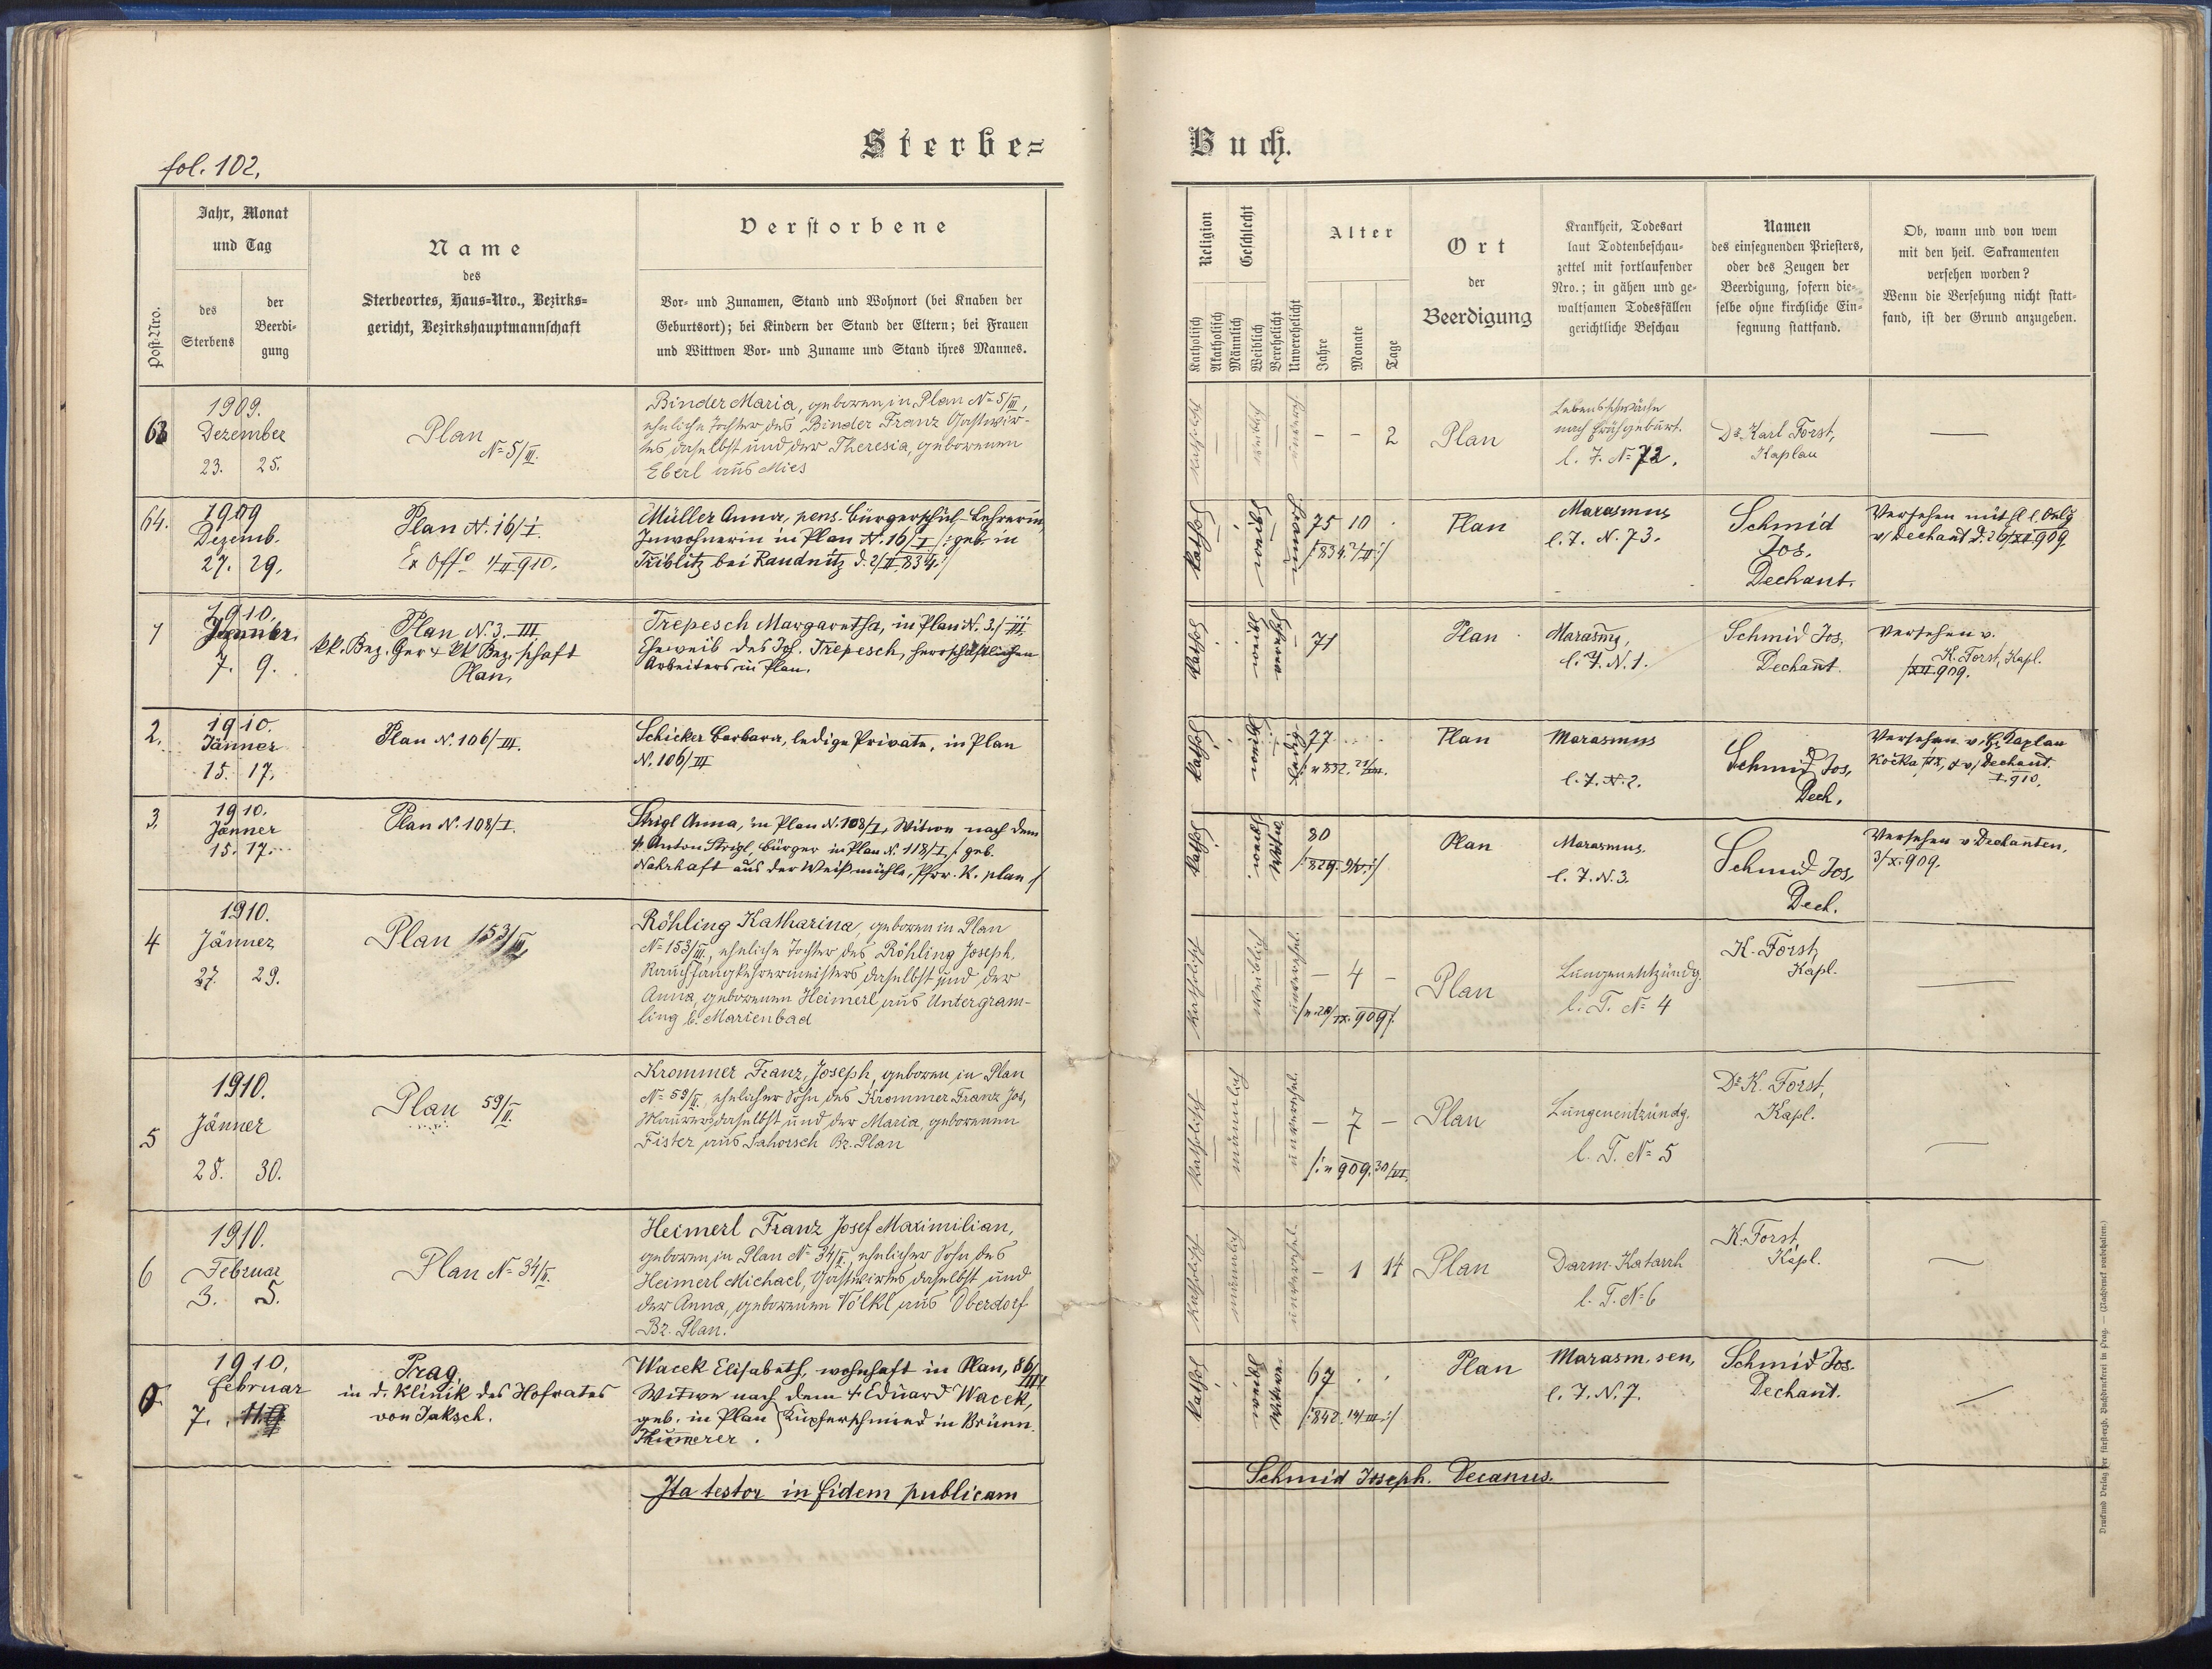 fol. 102.
Sterbe=
Post-Nro.
Jahr, Monat
und Tag
des
Sterbens
der
Beerdi-
gung
Name
des
Sterbeortes, Haus=Nro., Bezirks=
gericht, Bezirkshauptmannschaft
Verstorbene
Vor- und Zunamen, Stand und Wohnort (bei Knaben der
Geburtsort); bei Kindern der Stand der Eltern; bei Frauen
und Wittwen Vor- und Zuname und Stand ihres Mannes.
63
1909.
Dezember
23. 25.
Plan
N= 5/III.
Binder Maria, geboren in Plan N= 5/III,
eheliche Tochter des Binder Franz Gastwir-
tes daselbst und der Theresia, geborenen
Eberl aus Mies
64.
1909
Dezemb.
27. 29.
Plan N. 16/I.
Ex Offo 4/II 910.
Müller Anna, pens. Bürgerschul-Lehrerin,
Inwohnerin in Plan N. 16/I /: geb. in
Triblitz bei Raudnitz d. 2/II. 834 :/
1
1910.
Jänner
7. 9.
Plan N. 3. III
kk. Bez. Ger & kk Bez. schaft
Plan.
Trepesch Margaretha, in Plan N. 3./III.
Eheweib des Jos. Trepesch, herrschaftlichen
Arbeiters in Plan.
2.
1910.
Jänner
15. 17.
Plan N. 106/III.
Schicker Barbara, ledige Private, in Plan
N. 106/III
3.
1910.
Jänner
15. 17.
Plan N. 108/I.
Strigl Anna, in Plan N. 108/I, Witwe nach dem
† Anton Strigl, Bürger in Plan N. 118/I, /: geb.
Nahrhaft aus der Weißmühle, Pfarr. K. plan /
4
1910.
Jänner
27. 29.
Plan 153/III
Röhling Katharina, geboren in Plan
N= 153/III, eheliche Tochter des Röhling Joseph,
Rauchfangkehrermeisters daselbst und der
Anna, geborenen Heimerl aus Untergram-
ling b. Marienbad
5
1910.
Jänner
28. 30.
Plan 59/II.
Krommer Franz, Joseph, geboren in Plan
N= 59/II, ehelicher Sohn des Krommer Franz Jos,
Maurers daselbst und der Maria, geborenen
Fister aus Sahorsch Bz. Plan
6
1910.
Februar
3. 5.
Plan N= 34/II.
Heimerl Franz Josef Maximilian,
geboren in Plan N= 34/II, ehelicher Sohn des
Heimerl Michael, Gastwirtes daselbst und
der Anna, geborenen Völkl aus Oberdorf
Bz. Plan.
1910.
Februar
7. 11.
Prag,
in d. Klinik des Hofrates
von Jaksch.
Wacek Elisabeth, wohnhaft in Plan, 86/III
Witwe nach dem † Eduard Wacek,
geb. in Plan Kupferschmied in Brünn.
Thummerer.
Ita testor in fidem publicam
Buch.
Religion
Katholisch
Akatholisch
Geschlecht
Männlich
Weiblich
Verehelicht
Unverehelicht
Alter
Jahre
Monate
Tage
Ort
der
Beerdigung
Krankheit, Todesart
laut Todtenbeschau-
zettel mit fortlaufender
Nro.; in gähen und ge-
waltsamen Todesfällen
gerichtliche Beschau
Namen
des einsegnenden Priesters,
oder des Zeugen der
Beerdigung, sofern die-
selbe ohne kirchliche Ein-
segnung stattfand.
Ob, wann und von wem
mit den heil. Sakramenten
versehen worden?
Wenn die Versehung nicht statt-
fand, ist der Grund anzugeben.
katholisch
weiblich
- - 2
Plan
Lebensschwäche
nach Frühgeburt.
l. T. N= 72.
Dr. Karl Forst,
Kaplan
kathol.
75 10
/: 834. 2/II :/
Plan
Marasmus
l. T. N. 73.
Schmid
Jos.
Dechant.
Versehen mit
v/ Dechant d. 26/XII 909.
kathol.
71
Plan
Marasm,
l. T. N. 1.
Schmid Jos,
Dechant.
Versehen v.
K. Forst, Kapl.
/XII. 909.
kathol.
77
Plan
Marasmus
l. T. N. 2.
Schmid Jos,
Dech.
Versehen v. H. Kaplan
Kočka, & v/ Dechant.
I. 910.
kathol.
Witwe
80
Plan
Marasmus.
l. T. N. 3.
Schmid Jos,
Dech.
Versehen v Dechanten,
3/X. 909.
katholisch
weiblich
unverehel.
- 4 -
/n. 28/IX. 909/.
Plan
Lungenentzündg.
l. T. N= 4
K. Forst,
Kapl.
katholisch
männlich
unverehel.
- 7 -
/: n 909. 30/VI.
Plan
Lungenentzündg.
l. T. N= 5
Dr. K. Forst,
Kapl.
katholisch
männlich
unverehel.
- 1 14
Plan
Darm-Katarrh
l. T. N= 6
K. Forst,
Kapl.
kathol.
Witwe
67
Plan
Marasm. sen,
l. T. N. 7.
Schmid Jos.
Dechant.
Schmid Joseph. Decanus.
Druck und Verlag der fürst-erzb. Buchdruckerei in Prag. — (Nachdruck vorbehalten.)